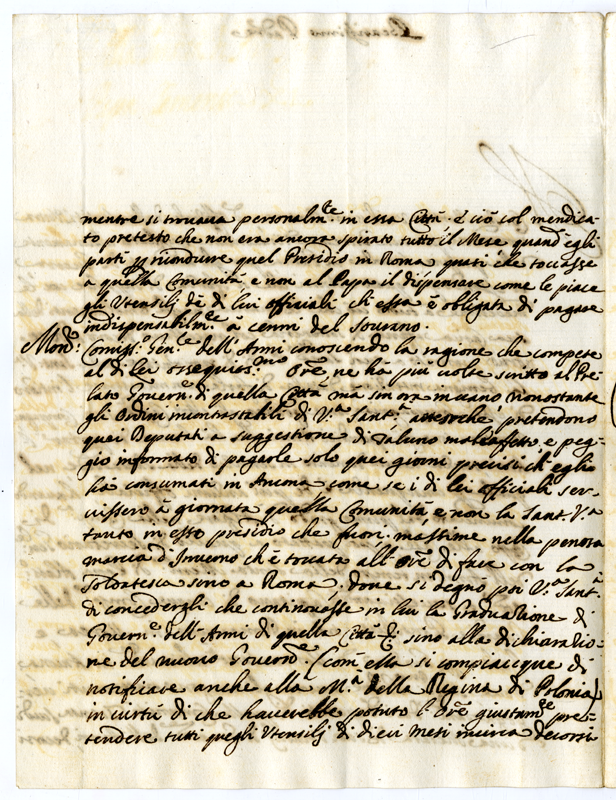 mentre si trovava personalm.te in essa Città. E ciò col mendica-
to pretesto che non era ancora spirato tutto il Mese quand'egli
partì p ricondurre quel Presidio in Roma quasi che toccasse
a quella Comunità e non al Papa il dispensare come le piace
gli Utensilj de di lui officiali ch'essa è obligata di pagare
indispensabilm.te a cenni del Sovrano.
Mon.r Comiss.o Gen.le dell'Armi conoscendo la ragione che compete
al di lei ossequios.mo Ore, ne hà più volte scritto al Pre-
lato Govern.r di quella Città mà sin ora invano nonostante
gli Ordini incontrastabili di V.a Sant.à attesoche pretendono
quei Deputati a suggestione di Taluno malaffetto e peg-
gio informato di pagarle solo quei giorni precisi ch'egli
hà consumati in Ancona come se i di lei officiali ser-
vissero à giornata quella Comunità e non la Sant. V.a
tanto in esso presidio che fuori massime nella penosa
marcia d'Inverno ch'è toccata all'Ore di fare con la
Soldatesca sino a Roma, dove si degnò poi V.a Sant.à
di concedergli che continovasse in lui la Graduazione di
Govern.e dell'Armi di quella Città sino alla dichiarazio-
ne del nuovo Govern.e (com'ella si compiacque di
notificare anche alla M.à della Regina di Polonia)
in virtù di che haverebbe potuto l'Ore giustam.te pre-
tendere tutti quegli Utensilj di dieci Mesi incirca decorsi